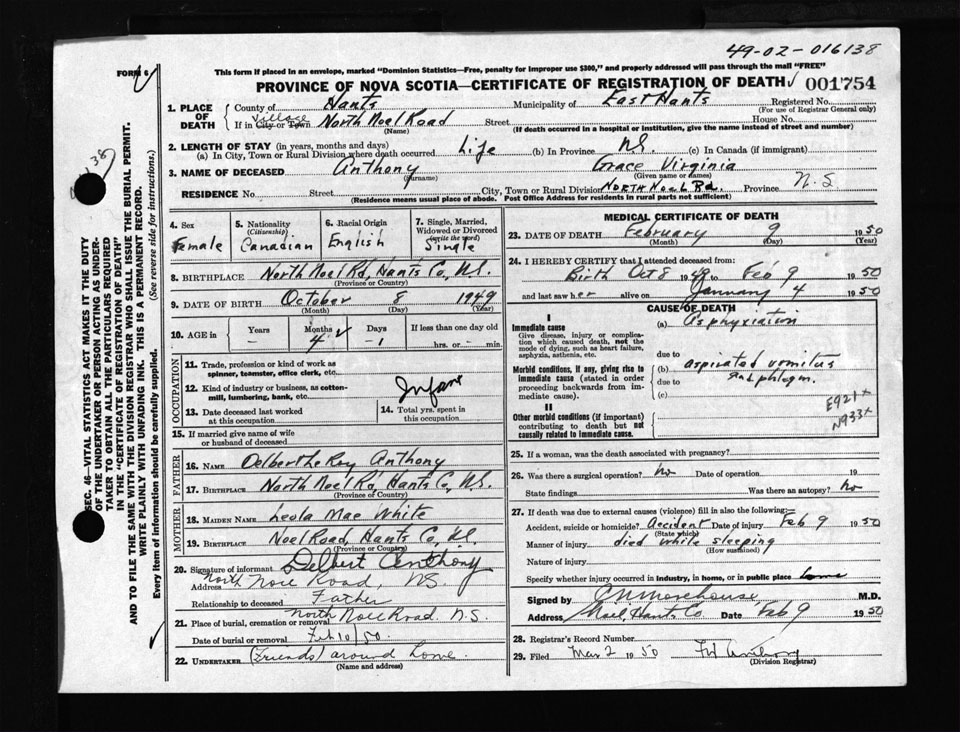 49-02-016138
FORM 6
This form if placed in an envelope, marked "Dominion Statistics—Free, penalty for improper use $300," and properly addressed will pass through the mail "FREE"
PROVINCE OF NOVA SCOTIA—CERTIFICATE OF REGISTRATION OF DEATH 001754
1. PLACE OF DEATH
County of Hants Municipality of East Hants Registered No.
(For use of Registrar General only)
If in City or Town Village North Noel Road Street House No.
(Name) (If death occurred in a hospital or institution, give the name instead of street and number)
2. LENGTH OF STAY (in years, months and days)
(a) In City, Town or Rural Division where death occurred Life (b) In Province N.S. (c) In Canada (if immigrant)
3. NAME OF DECEASED Anthony Grace Virginia
(Surname) (Given name or names)
RESIDENCE No. Street City, Town or Rural Division North Noel Rd. Province N.S
(Residence means usual place of abode. Post Office Address for residents in rural parts not sufficient)
4. Sex Female
5. Nationality (Citizenship) Canadian
6. Racial Origin English
7. Single, Married, Widowed or Divorced (write the word) Single
8. BIRTHPLACE North Noel Rd, Hants Co, N.S.
(Province or Country)
9. DATE OF BIRTH October 8 1949
(Month) (Day) (Year)
10. AGE in Years – Months 4 Days –1 If less than one day old
hrs. or – min.
OCCUPATION
11. Trade, profession or kind of work as spinner, teamster, office clerk, etc.
12. Kind of industry or business, as cotton-mill, lumbering, bank, etc. Infant
13. Date deceased last worked at this occupation
14. Total yrs. spent in this occupation
15. If married give name of wife or husband of deceased
FATHER
16. NAME Delbert LeRoy Anthony
17. BIRTHPLACE North Noel Rd, Hants Co, N.S.
(Province or Country)
MOTHER
18. MAIDEN NAME Leola Mae White
19. BIRTHPLACE Noel Road, Hants Co, N.S.
(Province or Country)
20. Signature of informant Delbert Anthony
Address North Noel Road, NS
Relationship to deceased Father
21. Place of burial, cremation or removal North Noel Road N.S.
Date of burial or removal Feb 10/50
22. UNDERTAKER (Friends) around home
(Name and address)
MEDICAL CERTIFICATE OF DEATH
23. DATE OF DEATH February 9 1950
(Month) (Day) (Year)
24. I HEREBY CERTIFY that I attended deceased from:
Birth Oct 8 1949 to Feb 9 1950
and last saw her alive on January 4 1950
CAUSE OF DEATH
I
Immediate cause
Give disease, injury or complication which caused death, not the mode of dying, such as heart failure, asphyxia, asthenia, etc.
(a) Asphyxiation
due to
Morbid conditions, if any, giving rise to immediate cause (stated in order proceeding backwards from immediate cause).
(b) aspirated vomitus and phlegm.
due to
(c)
II
Other morbid conditions (if important) contributing to death but not causally related to immediate cause.
E921+
N933+
25. If a woman, was the death associated with pregnancy?
26. Was there a surgical operation? No Date of operation 19
State findings Was there an autopsy? No
27. If death was due to external causes (violence) fill in also the following:
Accident, suicide or homicide? Accident Date of injury Feb 9 1950
(State which)
Manner of injury died while sleeping
(How sustained)
Nature of injury
Specify whether injury occurred in industry, in home, or in public place home
Signed by C N Morehouse M.D.
Address Noel, Hants Co Date Feb 9 1950
28. Registrar's Record Number
29. Filed Mar 2 1950 FW Anthony
(Division Registrar)
SEC. 46—VITAL STATISTICS ACT MAKES IT THE DUTY OF THE UNDERTAKER OR PERSON ACTING AS UNDERTAKER TO OBTAIN ALL THE PARTICULARS REQUIRED IN THE "CERTIFICATE OF REGISTRATION OF DEATH" AND TO FILE THE SAME WITH THE DIVISION REGISTRAR WHO SHALL ISSUE THE BURIAL PERMIT.
WRITE PLAINLY WITH UNFADING INK. THIS IS A PERMANENT RECORD.
Every item of information should be carefully supplied. (See reverse side for instructions.)